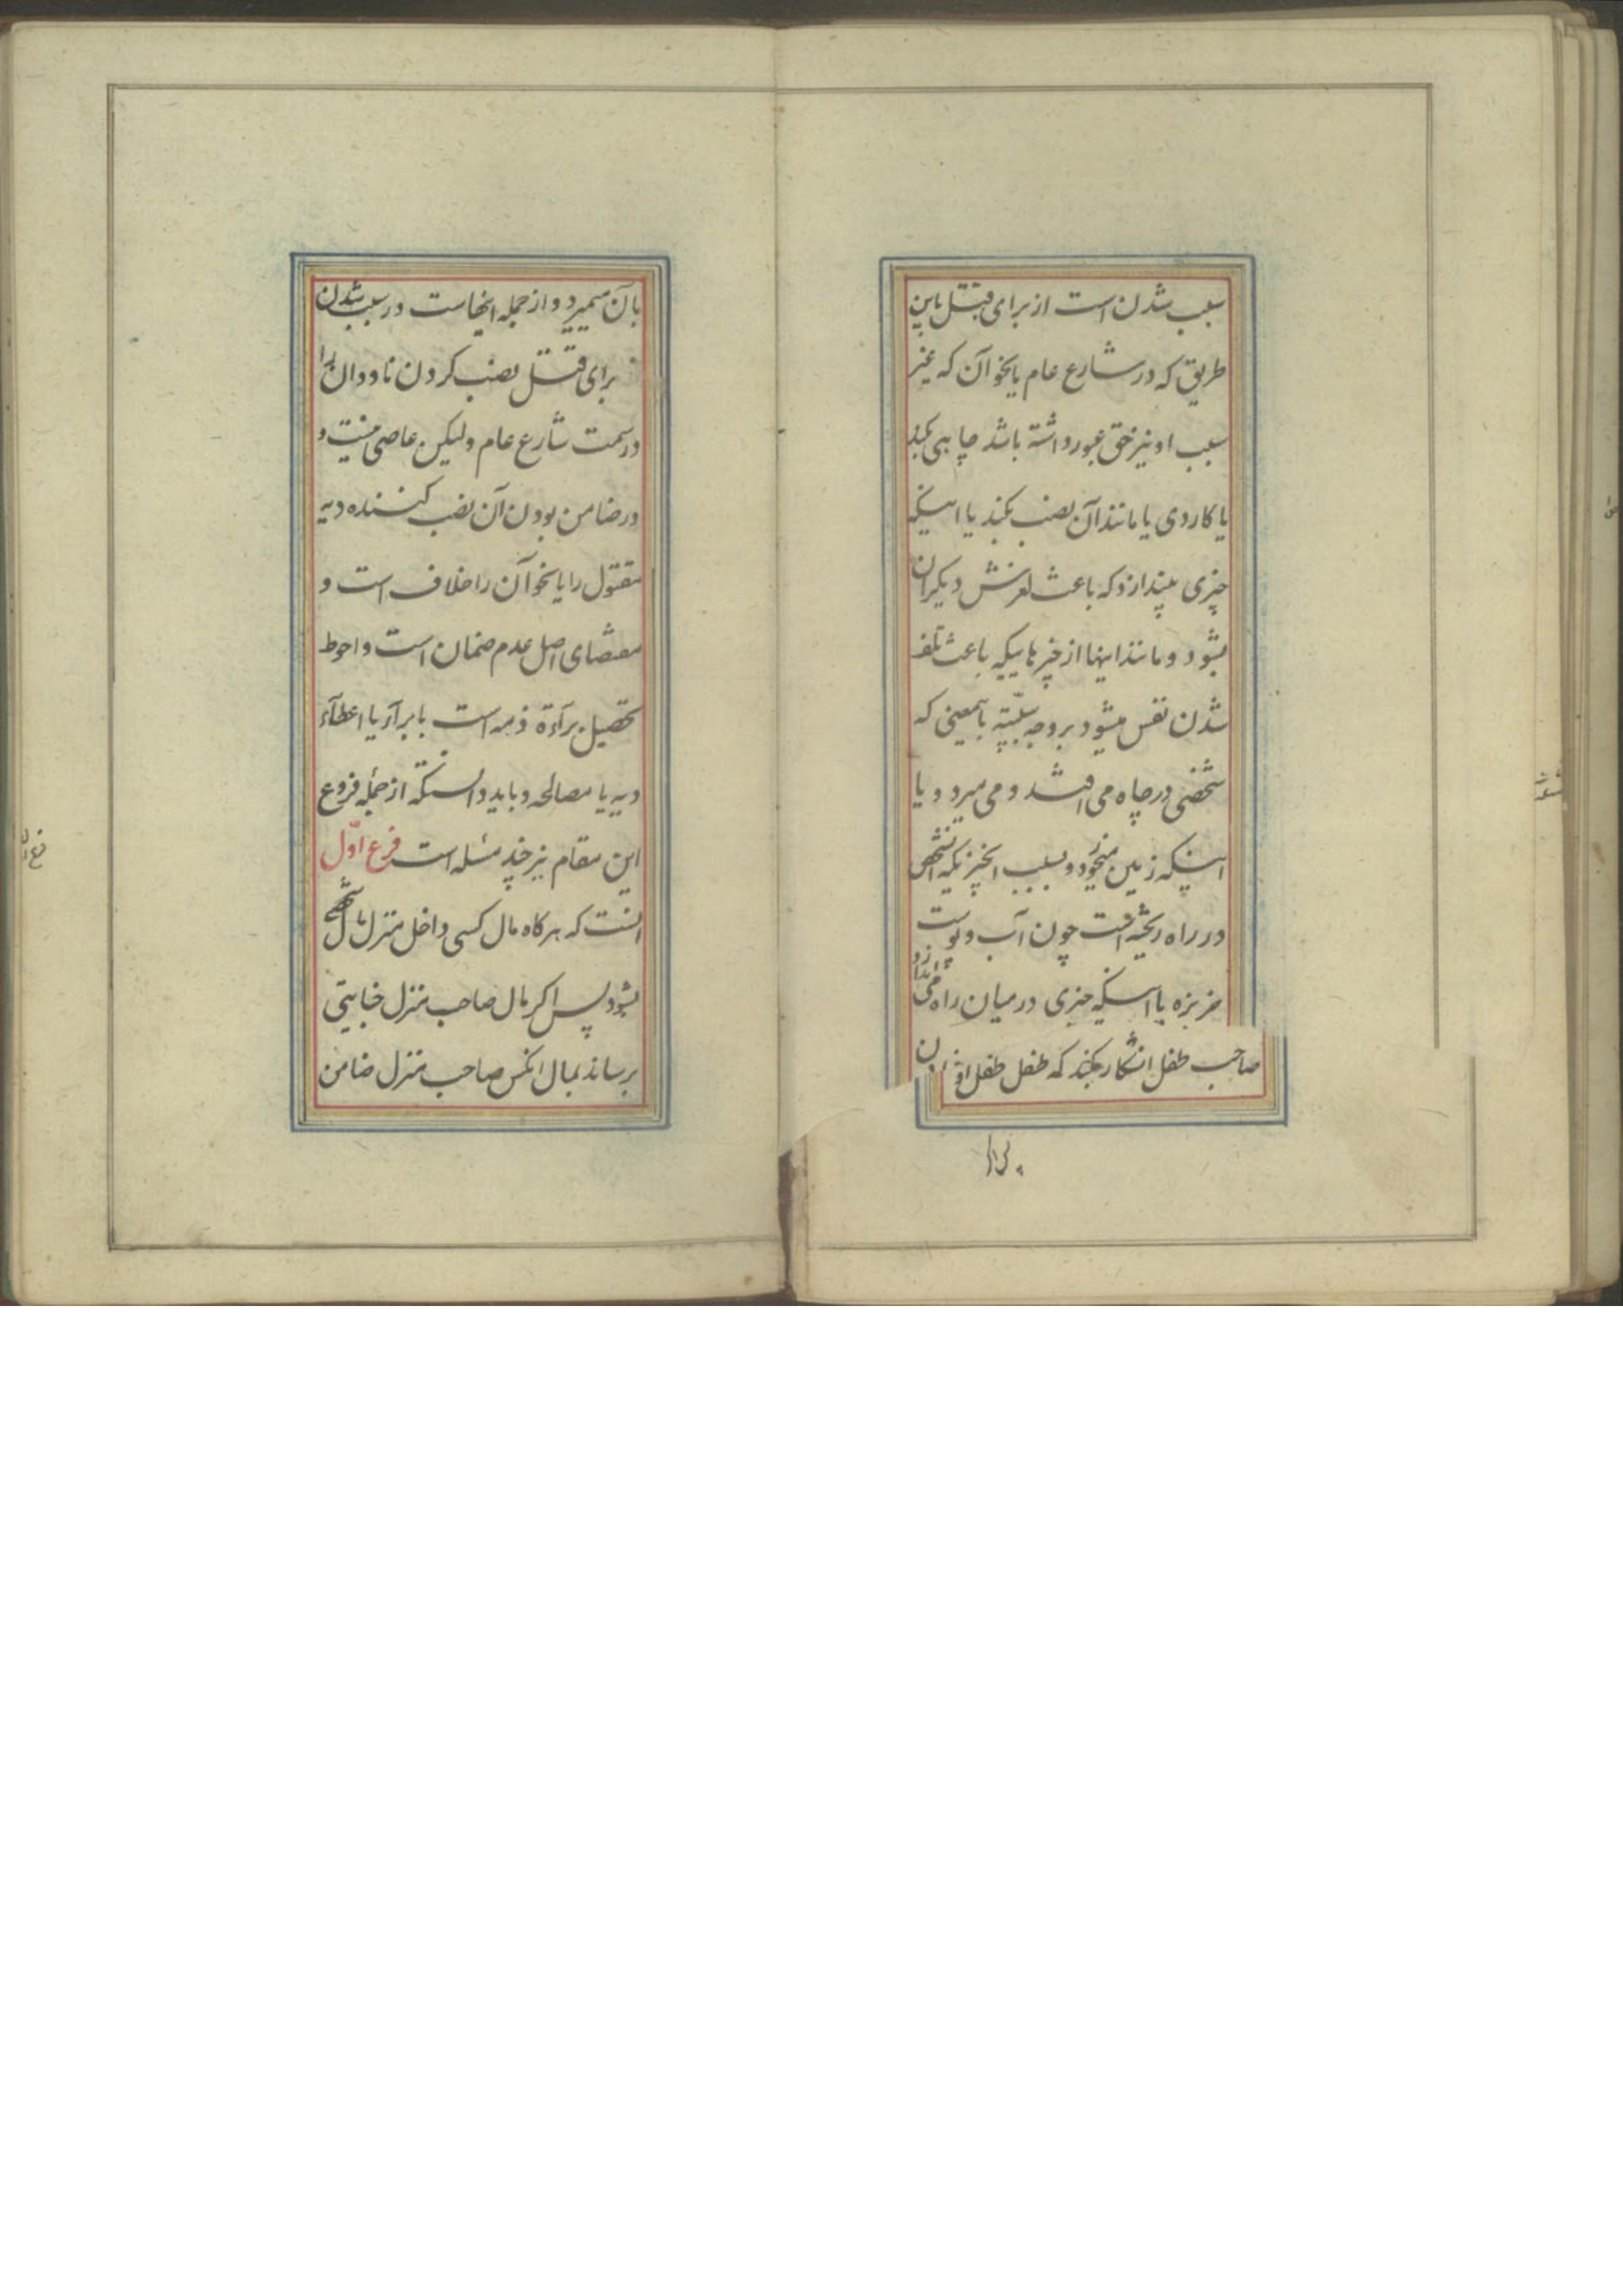 سبب شدن است از برای قتل باین
طریق که در شارع عام یا نحو آن که غیر
سبب او نیز حق عبور داشته باشد چاهی بکند
یا کاردی یا مانند آن نصب بکند یا اینکه
چیزی بیندازد که باعث لغزش دیکران
بشود و مانند اینها از چیزهاییکه باعث تلف
شدن نفس میشود بر وجه سببیّته باینمعنی که
شخصی در چاه می افتد و می میرد و یا
اینکه زمین میخورد و بسبب انچیزیکه انشخص
در راه ریخته است چون آب و پوست
خربزه یا اینکه چیزی در میان راه می اندازد
صاحب طفل انکار بکند که طفل طفل او
بآن میمیرد و از جمله اینهاست در سبب شدن
برای قتل نصب کردن ناودان را
در سمت شارع عام ولیکن عاصی نیست و
در ضامن بودن آن نصب کننده دیه
مقتول را یا نحو آن را خلاف است و
مقتضای اصل عدم ضمان است و احوط
تحصیل برآءة ذمه است بابرآء یا اعطآء
دیه یا مصالحه و باید دانستکه از جمله فروع
این مقام نیز چند مسئله است فرع اوّل
انست که هرکاه مال کسی داخل منزل مال شخصی
بشود پس اکر مال صاحب منزل جنایتی
برساند بمال انکس صاحب منزل ضامن